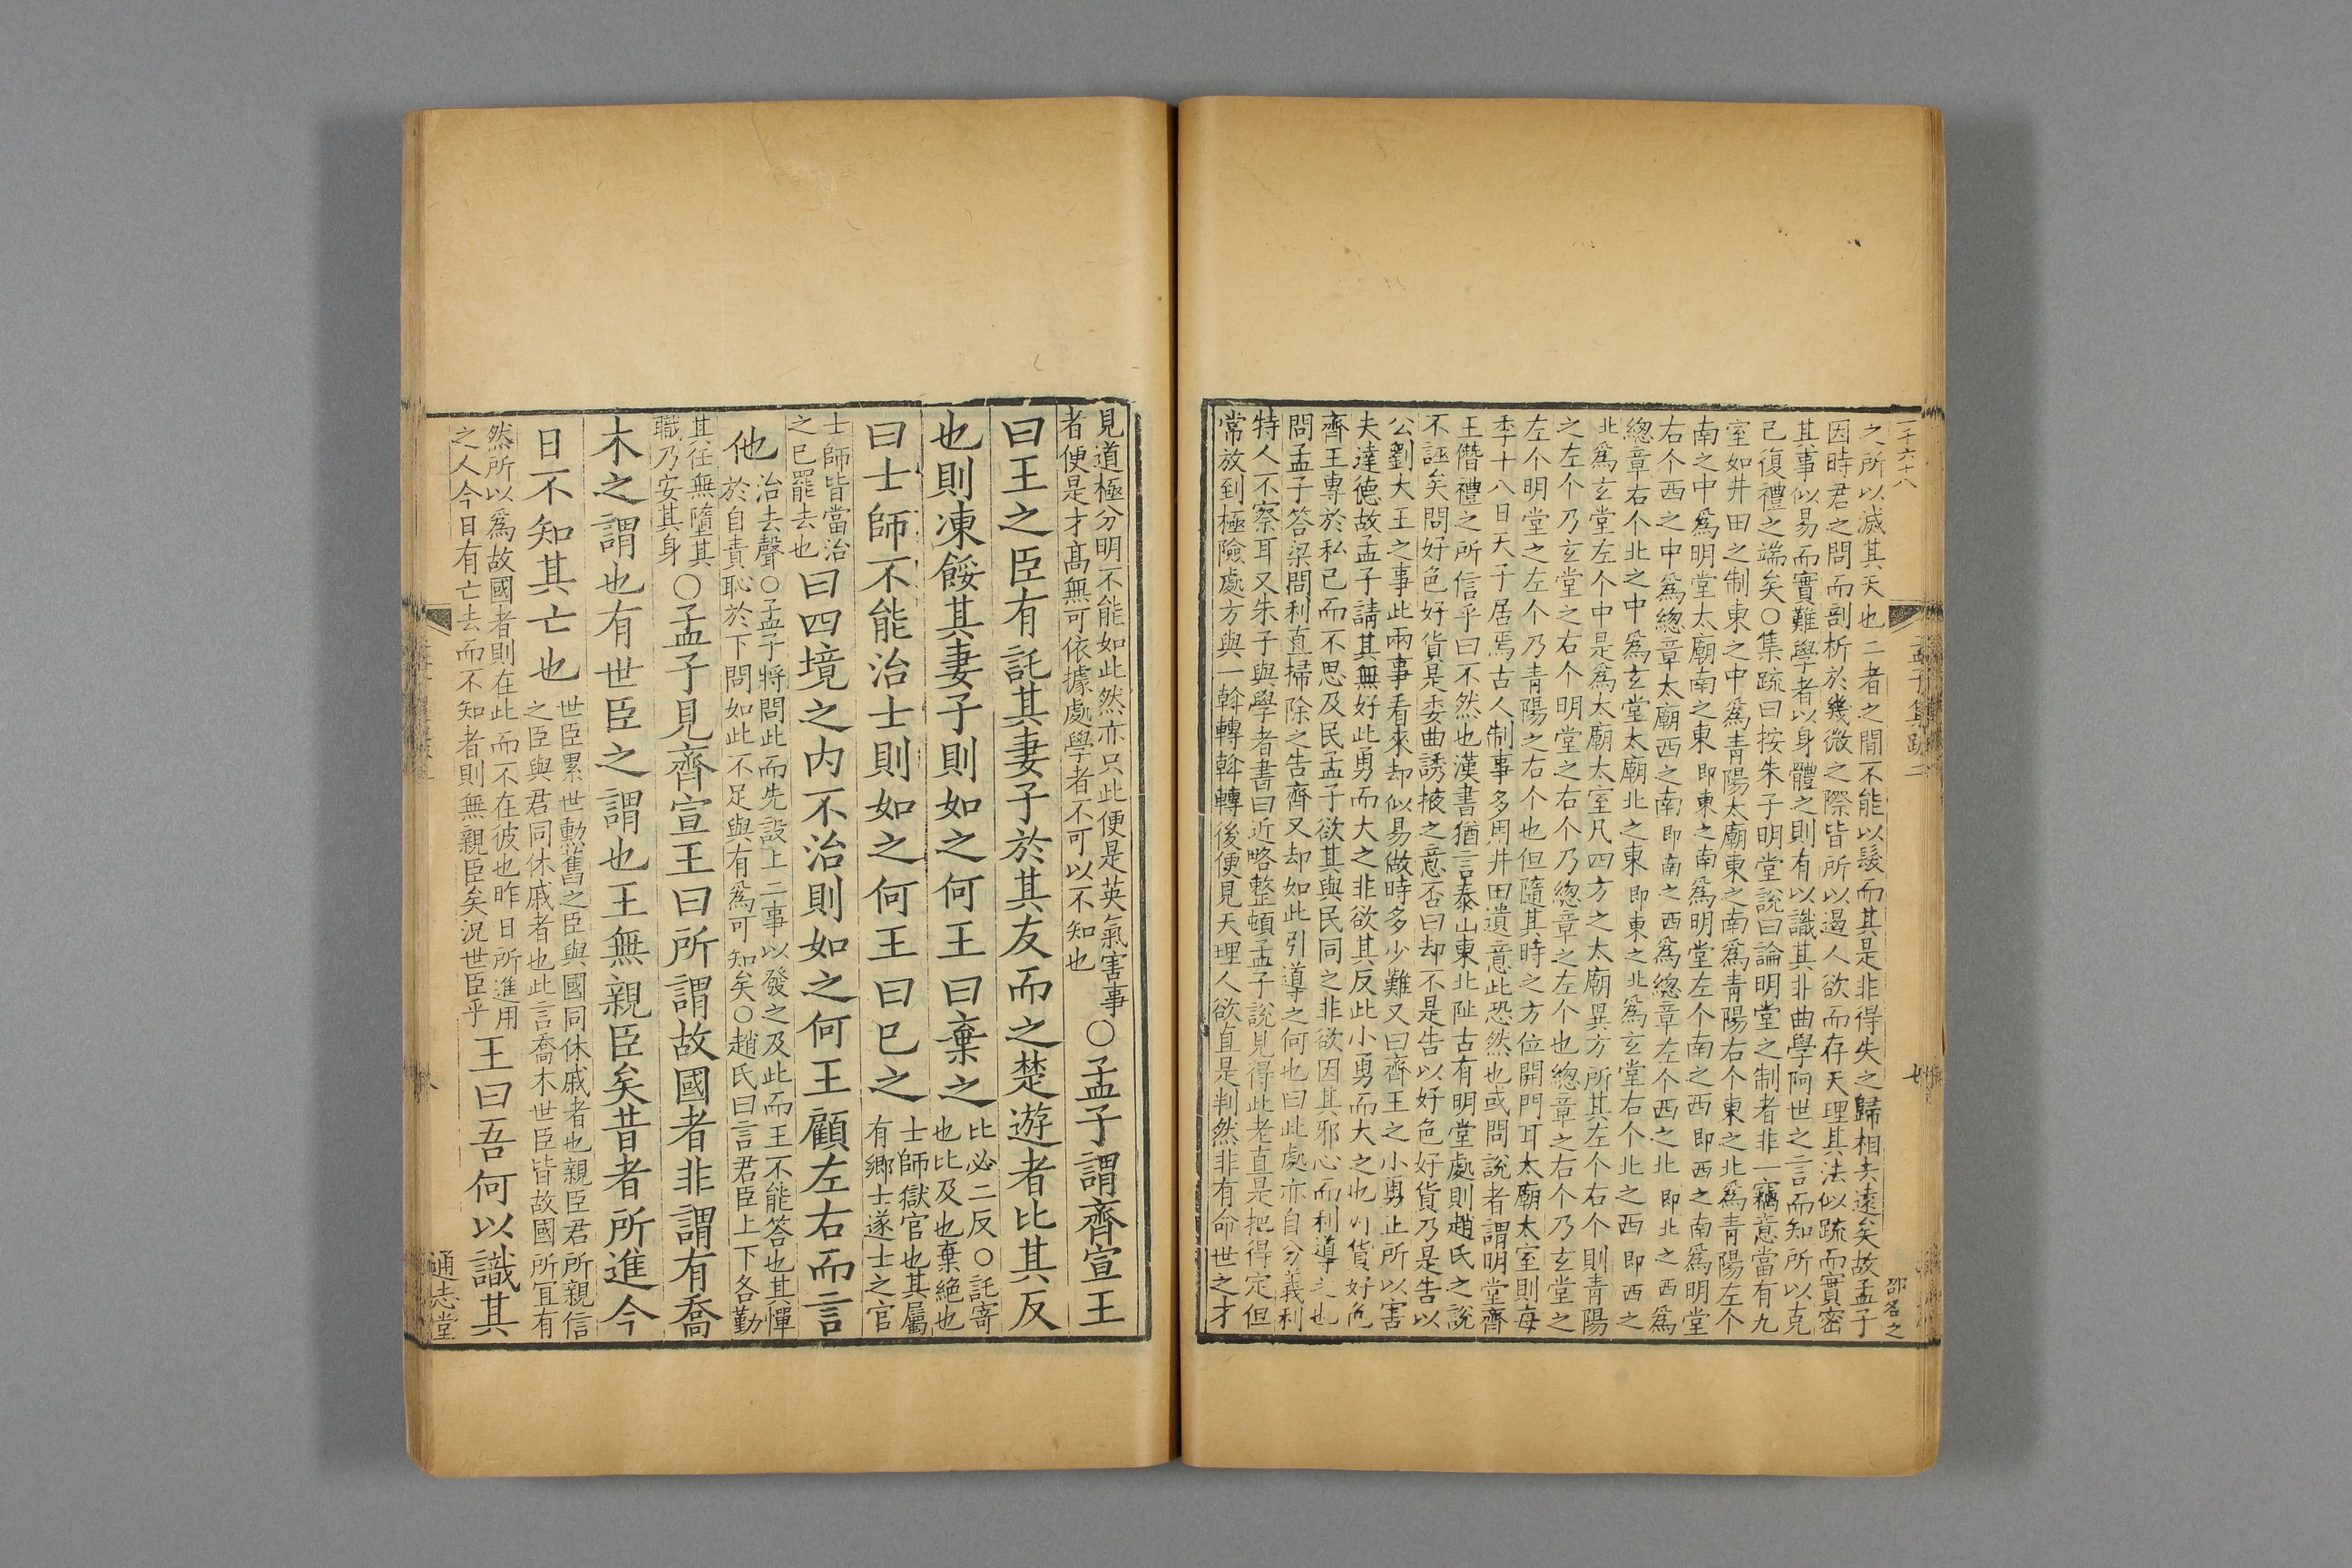 一千六十八
孟子集疏二
廿
邵名之
之所以滅其天也二者之間不能以髮而其是非得失之歸相去遠矣故孟子
因時君之問而剖析於幾微之際皆所以遏人欲而存天理其法似疏而實密
其事似易而實難學者以身體之則有以識其非曲學阿世之言而知所以克
己復禮之端矣○集疏曰按朱子明堂說曰論明堂之制者非一竊意當有九
室如井田之制東之中爲青陽太廟東之南爲青陽右个東之北爲青陽左个
南之中爲明堂太廟南之東即東之南爲明堂左个南之西即西之南爲明堂
右个西之中爲緫章太廟西之南即南之西爲緫章左个西之北即北之西爲
緫章右个北之中爲玄堂太廟北之東即東之北爲玄堂右个北之西即西之
北爲玄堂左个中是爲太廟太室凡四方之太廟異方所其左个右个則青陽
之左个乃玄堂之右个明堂之右个乃緫章之左个也緫章之右个乃玄堂之
左个明堂之左个乃青陽之右个也但隨其時之方位開門耳太廟太室則每
季十八日天子居焉古人制事多用井田遺意此恐然也或問說者謂明堂齊
王僭禮之所信乎曰不然也漢書猶言泰山東北阯古有明堂處則趙氏之說
不誣矣問好色好貨是委曲誘掖之意否曰却不是告以好色好貨乃是告以
公劉大王之事此兩事看來却似易做時多少難又曰齊王之小勇止所以害
夫達德故孟子請其無好此勇而大之非欲其反此小勇而大之也好貨好色
齊王專於私己而不思及民孟子欲其與民同之非欲因其邪心而利導之也
問孟子答梁問利直掃除之告齊又却如此引導之何也曰此處亦自分義利
特人不察耳又朱子與學者書曰近略整頓孟子說見得此老直是把得定但
常放到極險處方與一斡轉斡轉後便見天理人欲直是判然非有命世之才
見道極分明不能如此然亦只此便是英氣害事
者便是才高無可依據處學者不可以不知也
○孟子謂齊宣王
曰王之臣有託其妻子於其友而之楚遊者比其反
也則凍餒其妻子則如之何王曰棄之
比必二反○託寄
也比及也棄絶也
曰士師不能治士則如之何王曰已之
士師獄官也其屬
有鄉士遂士之官
士師皆當治
之已罷去也
曰四境之内不治則如之何王顧左右而言
他
治去聲○孟子將問此而先設上二事以發之及此而王不能答也其憚
於自責恥於下問如此不足與有爲可知矣○趙氏曰言君臣上下各勤
其任無隳其
職乃安其身
○孟子見齊宣王曰所謂故國者非謂有喬
木之謂也有世臣之謂也王無親臣矣昔者所進今
日不知其亡也
世臣累世勳舊之臣與國同休戚者也親臣君所親信
之臣與君同休戚者也此言喬木世臣皆故國所宜有
然所以爲故國者則在此而不在彼也昨日所進用
之人今日有亡去而不知者則無親臣矣況世臣乎
王曰吾何以識其
通志堂